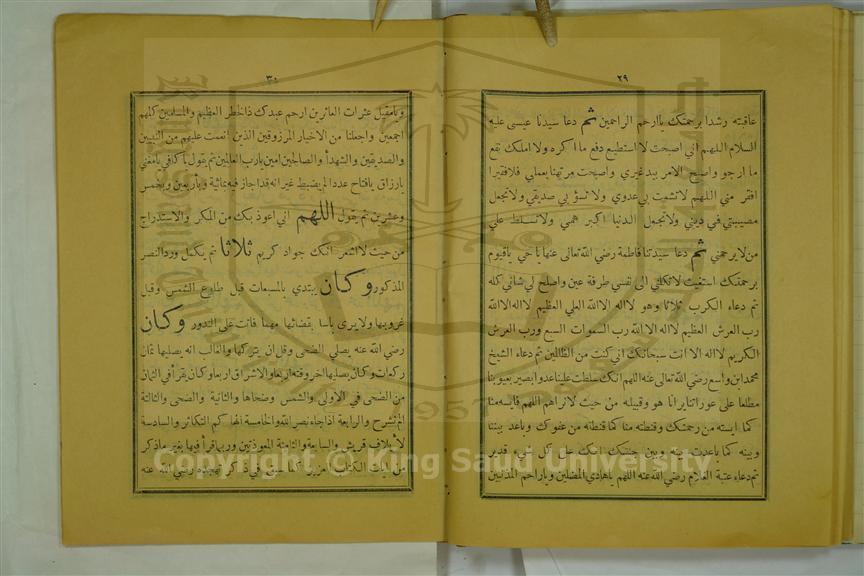 ٢٩
عاقبته رشدا برحمتك ياارحم الراحمين ثم دعا سيدنا عيسى عليه
السلام اللهم اني اصبحت لااستطيع دفع ما اكره ولا املك نفع
ما ارجو واصبح الامر بيد غيري واصبحت مرتهنا بعملي فلا فقيرا
افقر مني اللهم لاتشمت بي عدوي ولا تسؤ بي صديقي ولاتجعل
مصيبتي في ديني ولاتجعل الدنيا اكبر همي ولاتسلط علي
من لا يرحمني ثم دعا سيدتنا فاطمة رضي الله تعالى عنها يا حي ياقيوم
برحمتك استغيث لاتكلني الى نفسي طرفة عين واصلح لي شاني كله
ثم دعاء الكرب ثلاثا وهو لااله الاالله العلي العظيم لااله الاالله
رب العرش العظيم لااله الا الله رب السموات السبع ورب العرش
الكريم لااله الا انت سبحانك اني كنت من الظالمين ثم دعاء الشيخ
محمد ابن واسع رضي الله تعالى عنه اللهم انك سلطت علينا عدوا بصير بعيوبنا
مطلعا على عوراتنا يرانا هو وقبيله من حيث لانراهم اللهم فايسه منا
كما ايسته من رحمتك وقنطه منا كما قنطته من عفوك وباعد بيننا
وبينه كما باعدت بينه وبين جنتك انك على كل شيء قدير
ثم دعاء عتبة الغلام رضي الله عنه اللهم ياهادي المضلين وياراحم المذنبين
٣٠
ويامقيل عثرات العاثرين ارحم عبدك ذا الخطر العظيم والمسلمين كلهم
اجمعين واجعلنا من الاخيار المرزوقين الذين انعمت عليهم من النبيين
والصديقين والشهدأ والصالحين امين يارب العالمين ثم يقول ياكافي يامغني
يارزاق يافتاح عددا لم يضبط غير انه قد اجاز فيه بثمانية واربعين وبخمس
وعشرين ثم يقول اللهم اني اعوذ بك من المكر والاستدراج
من حيث لااشعر انك جواد كريم ثلاثا ثم يكمل ورد النصر
المذكور وكان يبتدي بالمسبعات قبل طلوع الشمس وقبل
غروبها ولايرى باسا بقضائها مهما فاتت على الندور وكان
رضي الله عنه يصلي الضحى وقل ان يتركها والغالب انه يصليها ثمان
ركعات وكان يصليها اخر وقته اربعا والاشراق اربعا وكان يقرأ في الثمان
من الضحى في الاولى والشمس وضحاها والثانية والضحى والثالثة
الم نشرح والرابعة اذا جاء نصر الله والخامسة الهاكم التكاثر والسادسة
لأيلاف قريش والسابعة والثامنة المعوذتين وربما قرأ فيها بغير ماذكر
من ايات الكتاب العزيز كما سبق في ذكر تهجده رضي الله عنه
Copyright © King Saud University
1957